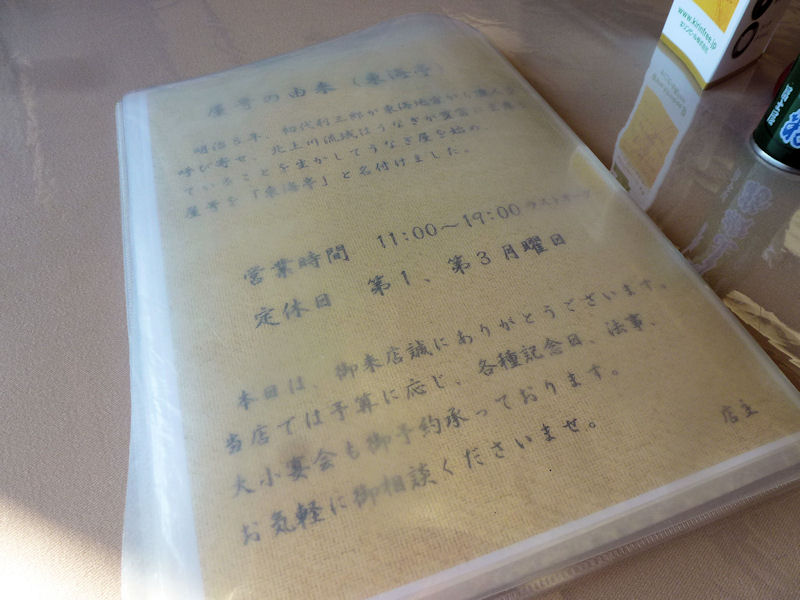 屋号の由来（東海亭）
明治8年、初代利三郎が東海地方から職人を
呼び寄せ、北上川流域はうなぎが豊富に生息し
ていることを生かしてうなぎ屋を始め
屋号を「東海亭」と名付けました。
営業時間 11:00～19:00 ラストオーダー
定休日 第1、第3月曜日
本日は、御来店誠にありがとうございます。
当店では予算に応じ、各種記念日、法事、
大小宴会も御予約承っております。
お気軽に御相談くださいませ。
店主
www.kirinfree.jp
キリンビール株式会社